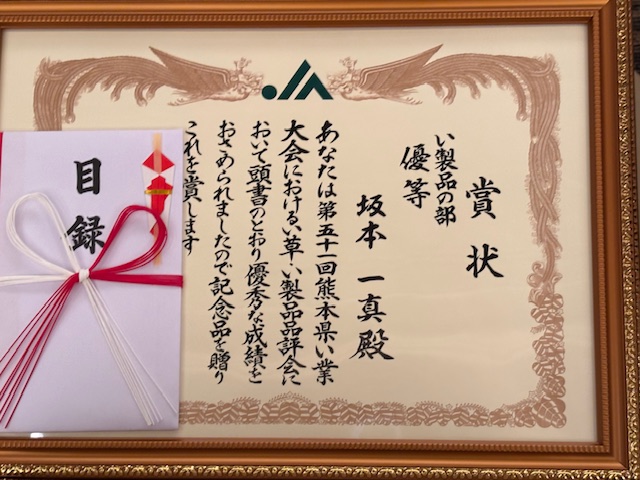 賞状
い製品の部
優等
坂本一真殿
あなたは第五十一回熊本県い業
大会における い草・い製品品評会に
おいて頭書のとおり優秀な成績を
おさめられましたので記念品を贈り
これを賞します
目録
JA